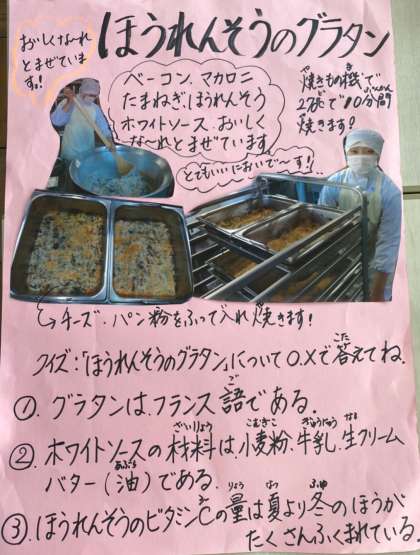 ほうれんそうのグラタン
おいしくな〜れ
とまぜていま
す。!
ベーコン、マカロニ
たまねぎ、ほうれんそう
ホワイトソース、おいしく
な〜れとまぜています
とてもいいにおいで〜す!!
焼きもの機で
2度で10分間
焼きます!
→チーズ・パン粉をふって入れ焼きます!
クイズ:「ほうれんそうのグラタン」について○.×で答えてね.
①.グラタンは、フランス語である.
②.ホワイトソースの材料は、小麦粉、牛乳、生クリーム
バター(油)である.
③.ほうれんそうのビタミンCの量は夏より冬のほうが
たくさんふくまれている.